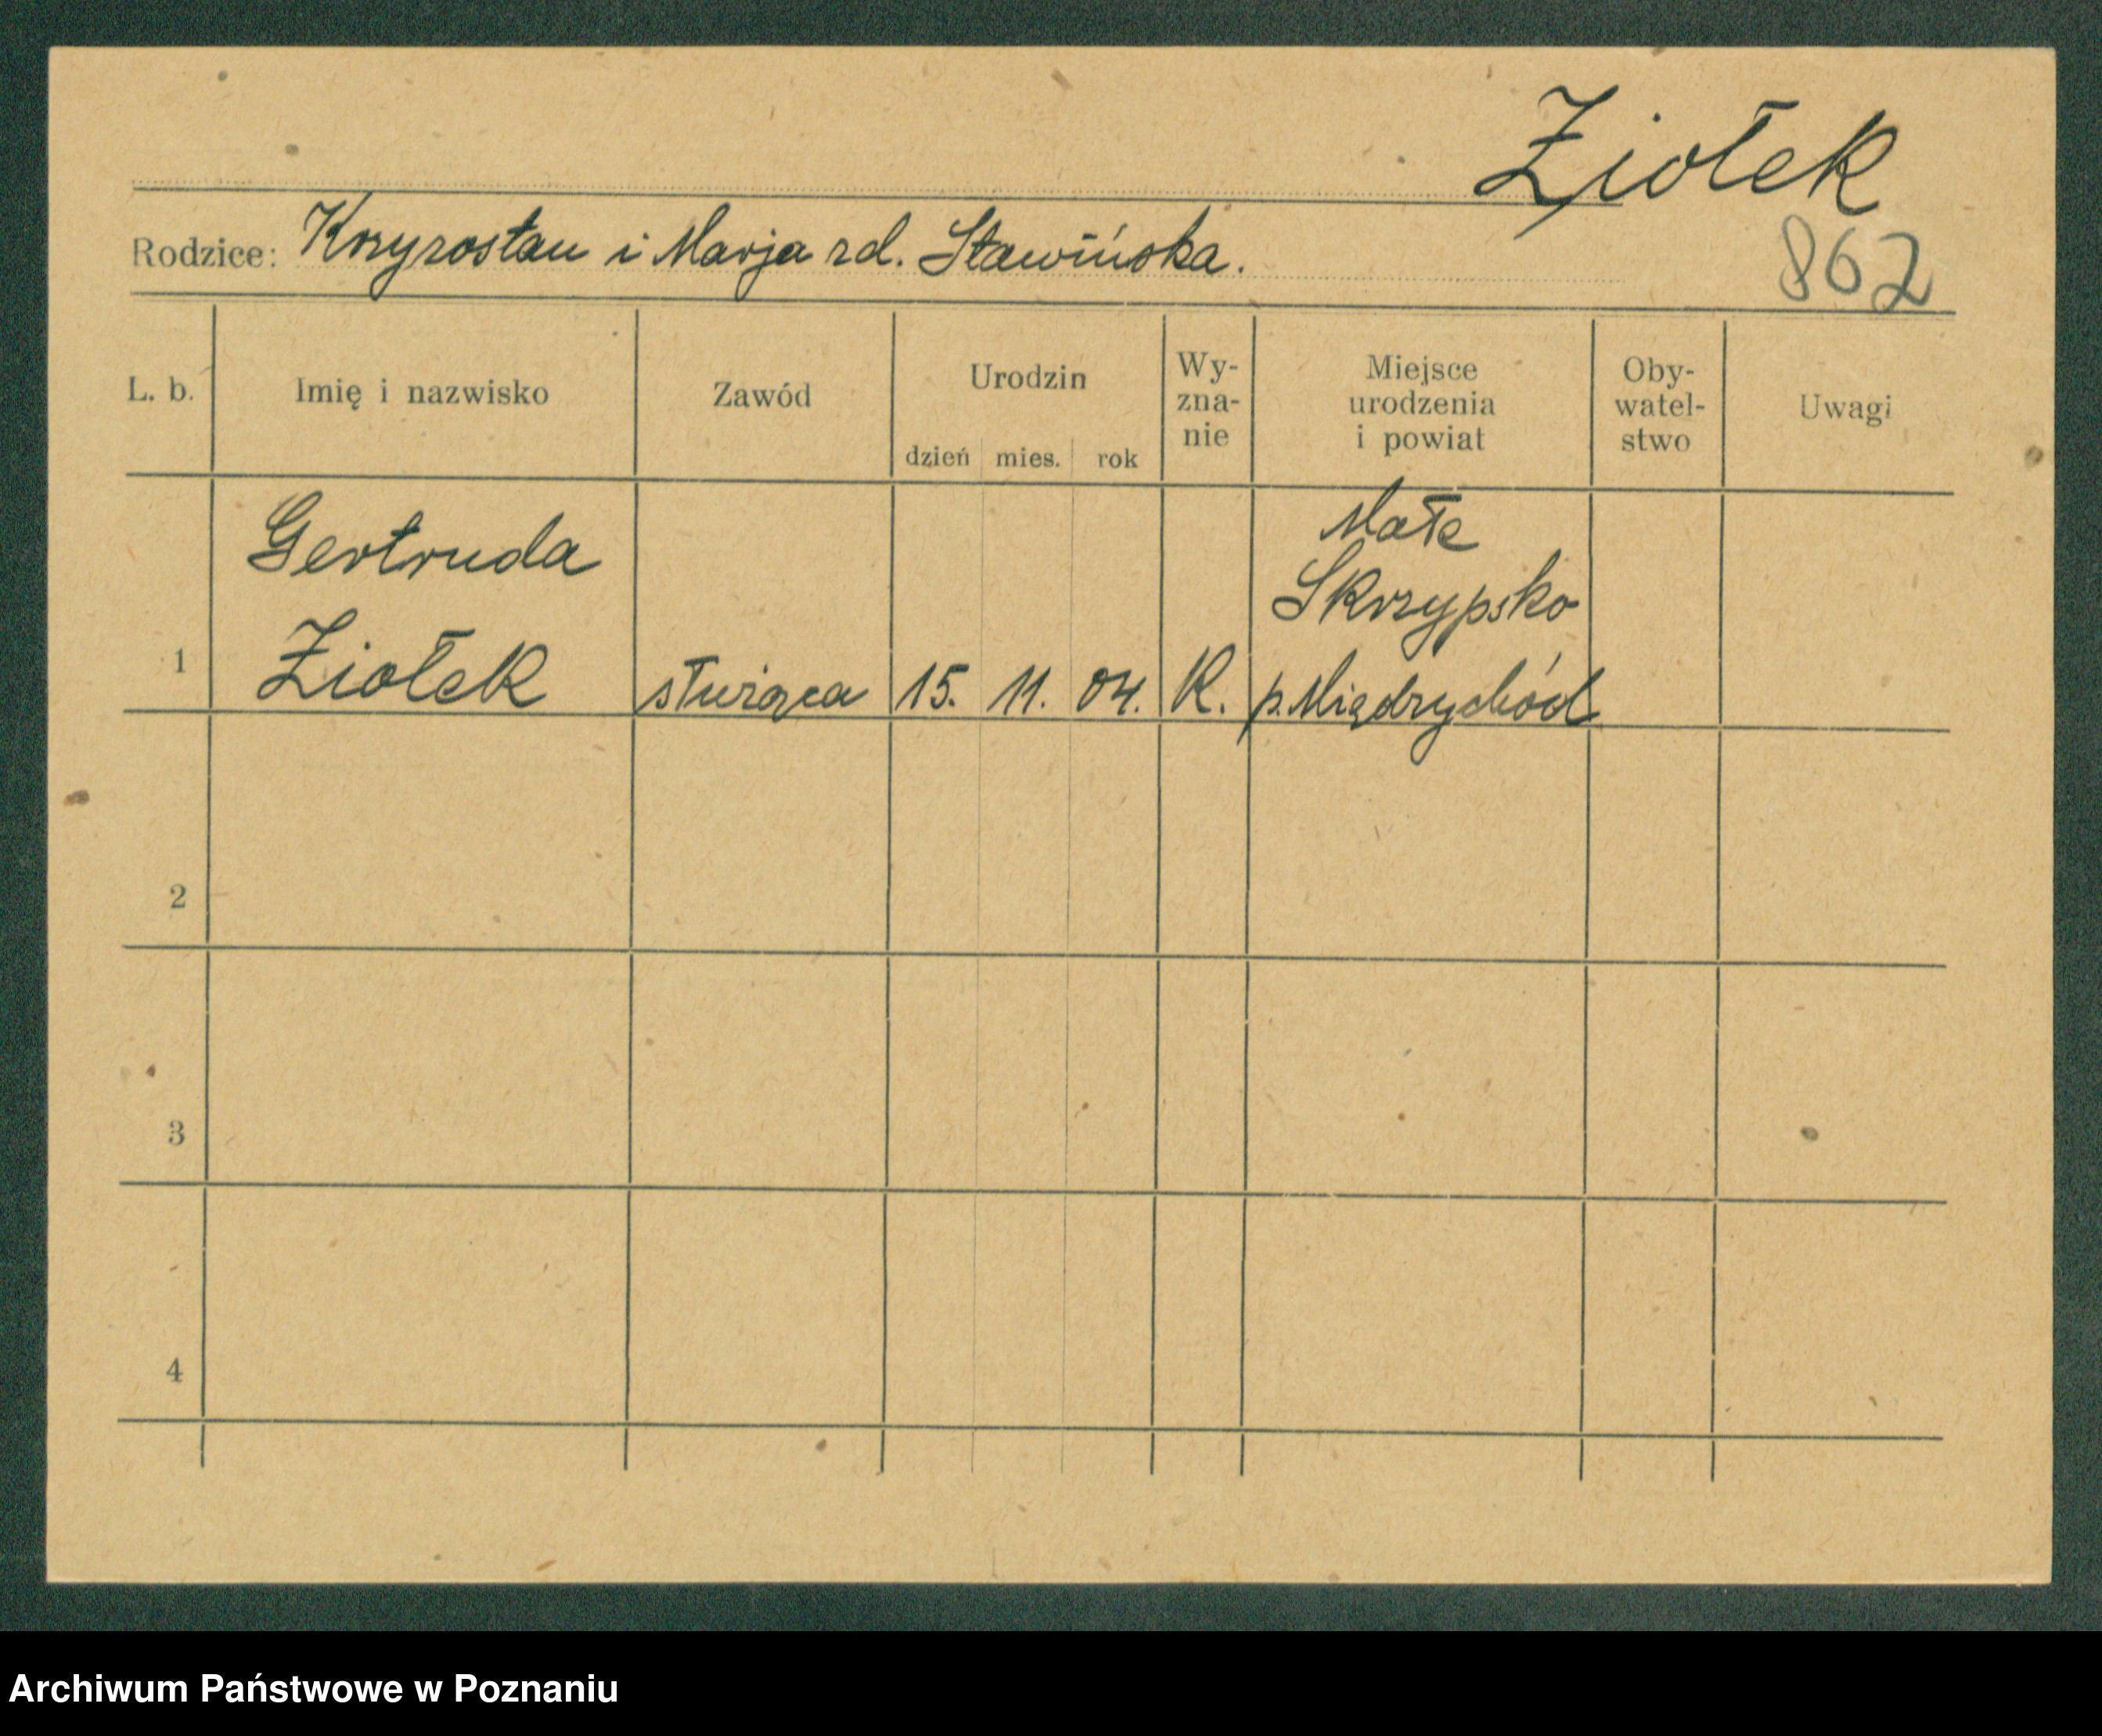 Ziołek
Rodzice: Krzyzostan i Marja zd. Sławińska.
862
L. b. Imię i nazwisko Zawód Urodzin dzień mies. rok Wy-zna-nie Miejsce urodzenia i powiat Oby-watel-stwo Uwagi
Gertruda Małe
Skrzypsko
1 Ziołek służąca 15. 11. 04. K. p. Międzychód
2
3
4
Archiwum Państwowe w Poznaniu